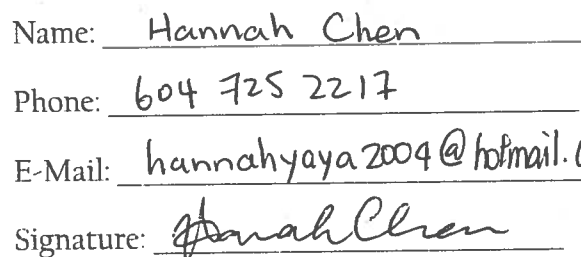 Name: Hannah Chen
Phone: 604 725 2217
E-Mail: hannahyaya2004@hotmail.c
Signature: Hannah Chen